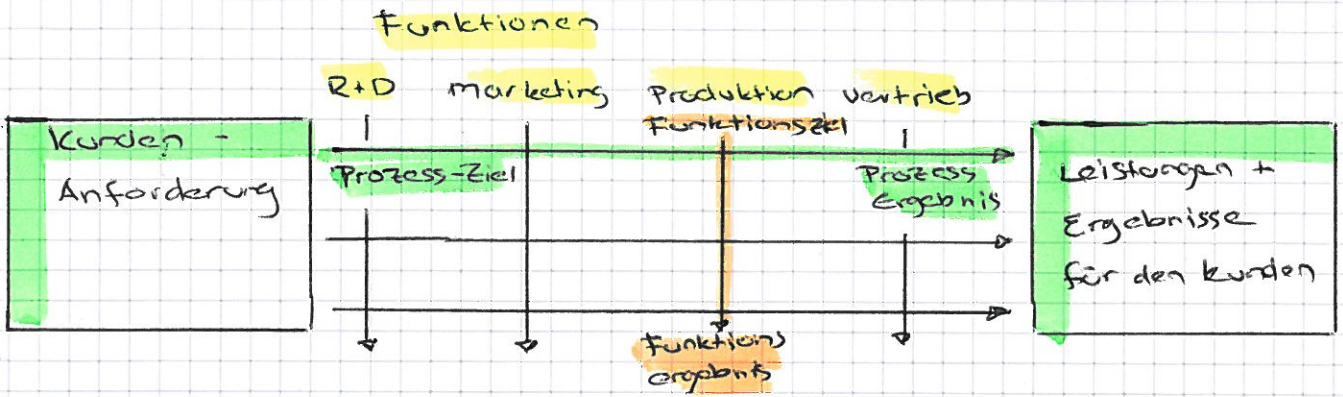 Funktionen
R+D Marketing Produktion Vertrieb
Funktionsziel
Kunden -
Anforderung
Prozess-Ziel
Prozess
Ergebnis
Leistungen +
Ergebnisse
für den Kunden
Funktions
ergebnis